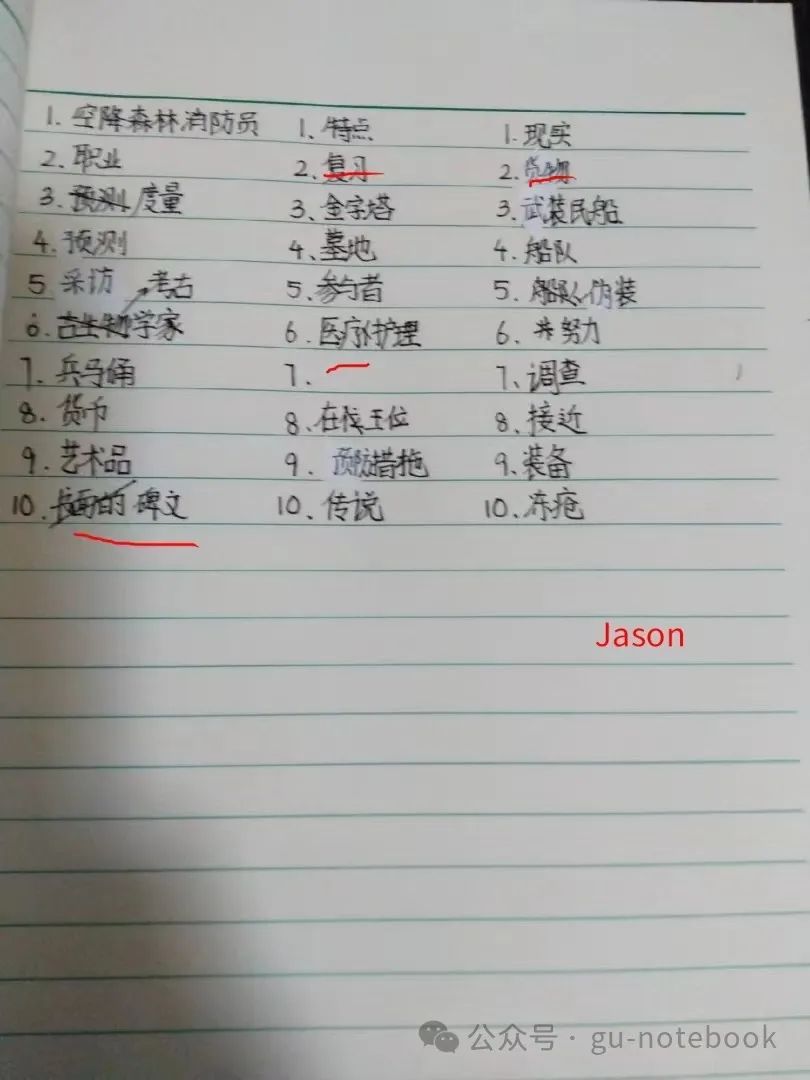 1. 空降森林消防员 1、特点 1.现实
2. 职业 2.复习 2.货物
3. 预测 度量 3、金字塔 3.武装民船
4. 预测 4、墓地 4.船队
5 采访 考古 5、参与者 5、船队伪装
6. 古生物学家 6、医疗护理 6、努力
7. 兵马俑 7. 7、调查
8. 货币 8、在位王位 8、接近
9. 艺术品 9、预防措拖 9、装备
10. 的 碑文 10、传说 10、冻疮
Jason
公众号·gu-notebook